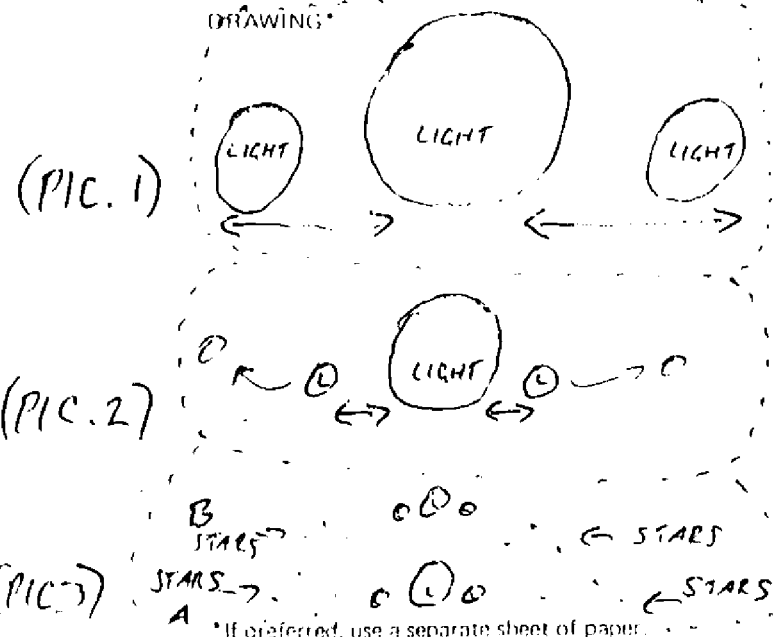 DRAWING*
LIGHT LIGHT LIGHT
(PIC. 1)
L LIGHT L
(PIC. 2)
B L
STARS STARS
(PIC 3) STARS L STARS
A
*If preferred, use a separate sheet of paper.